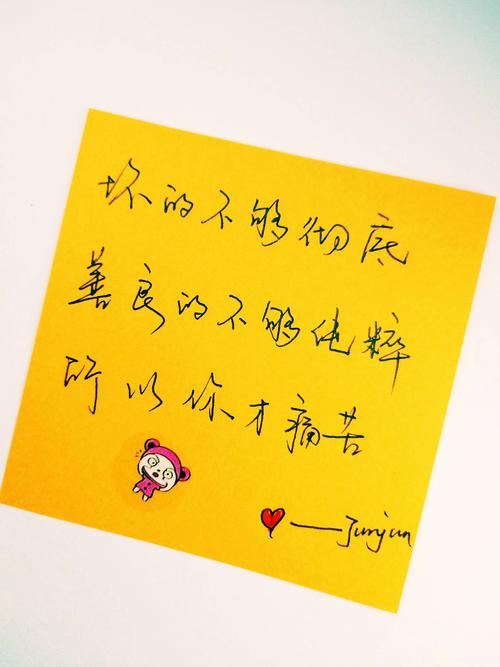 坏的不够彻底
善良的不够纯粹
所以你才痛苦
——Junjun